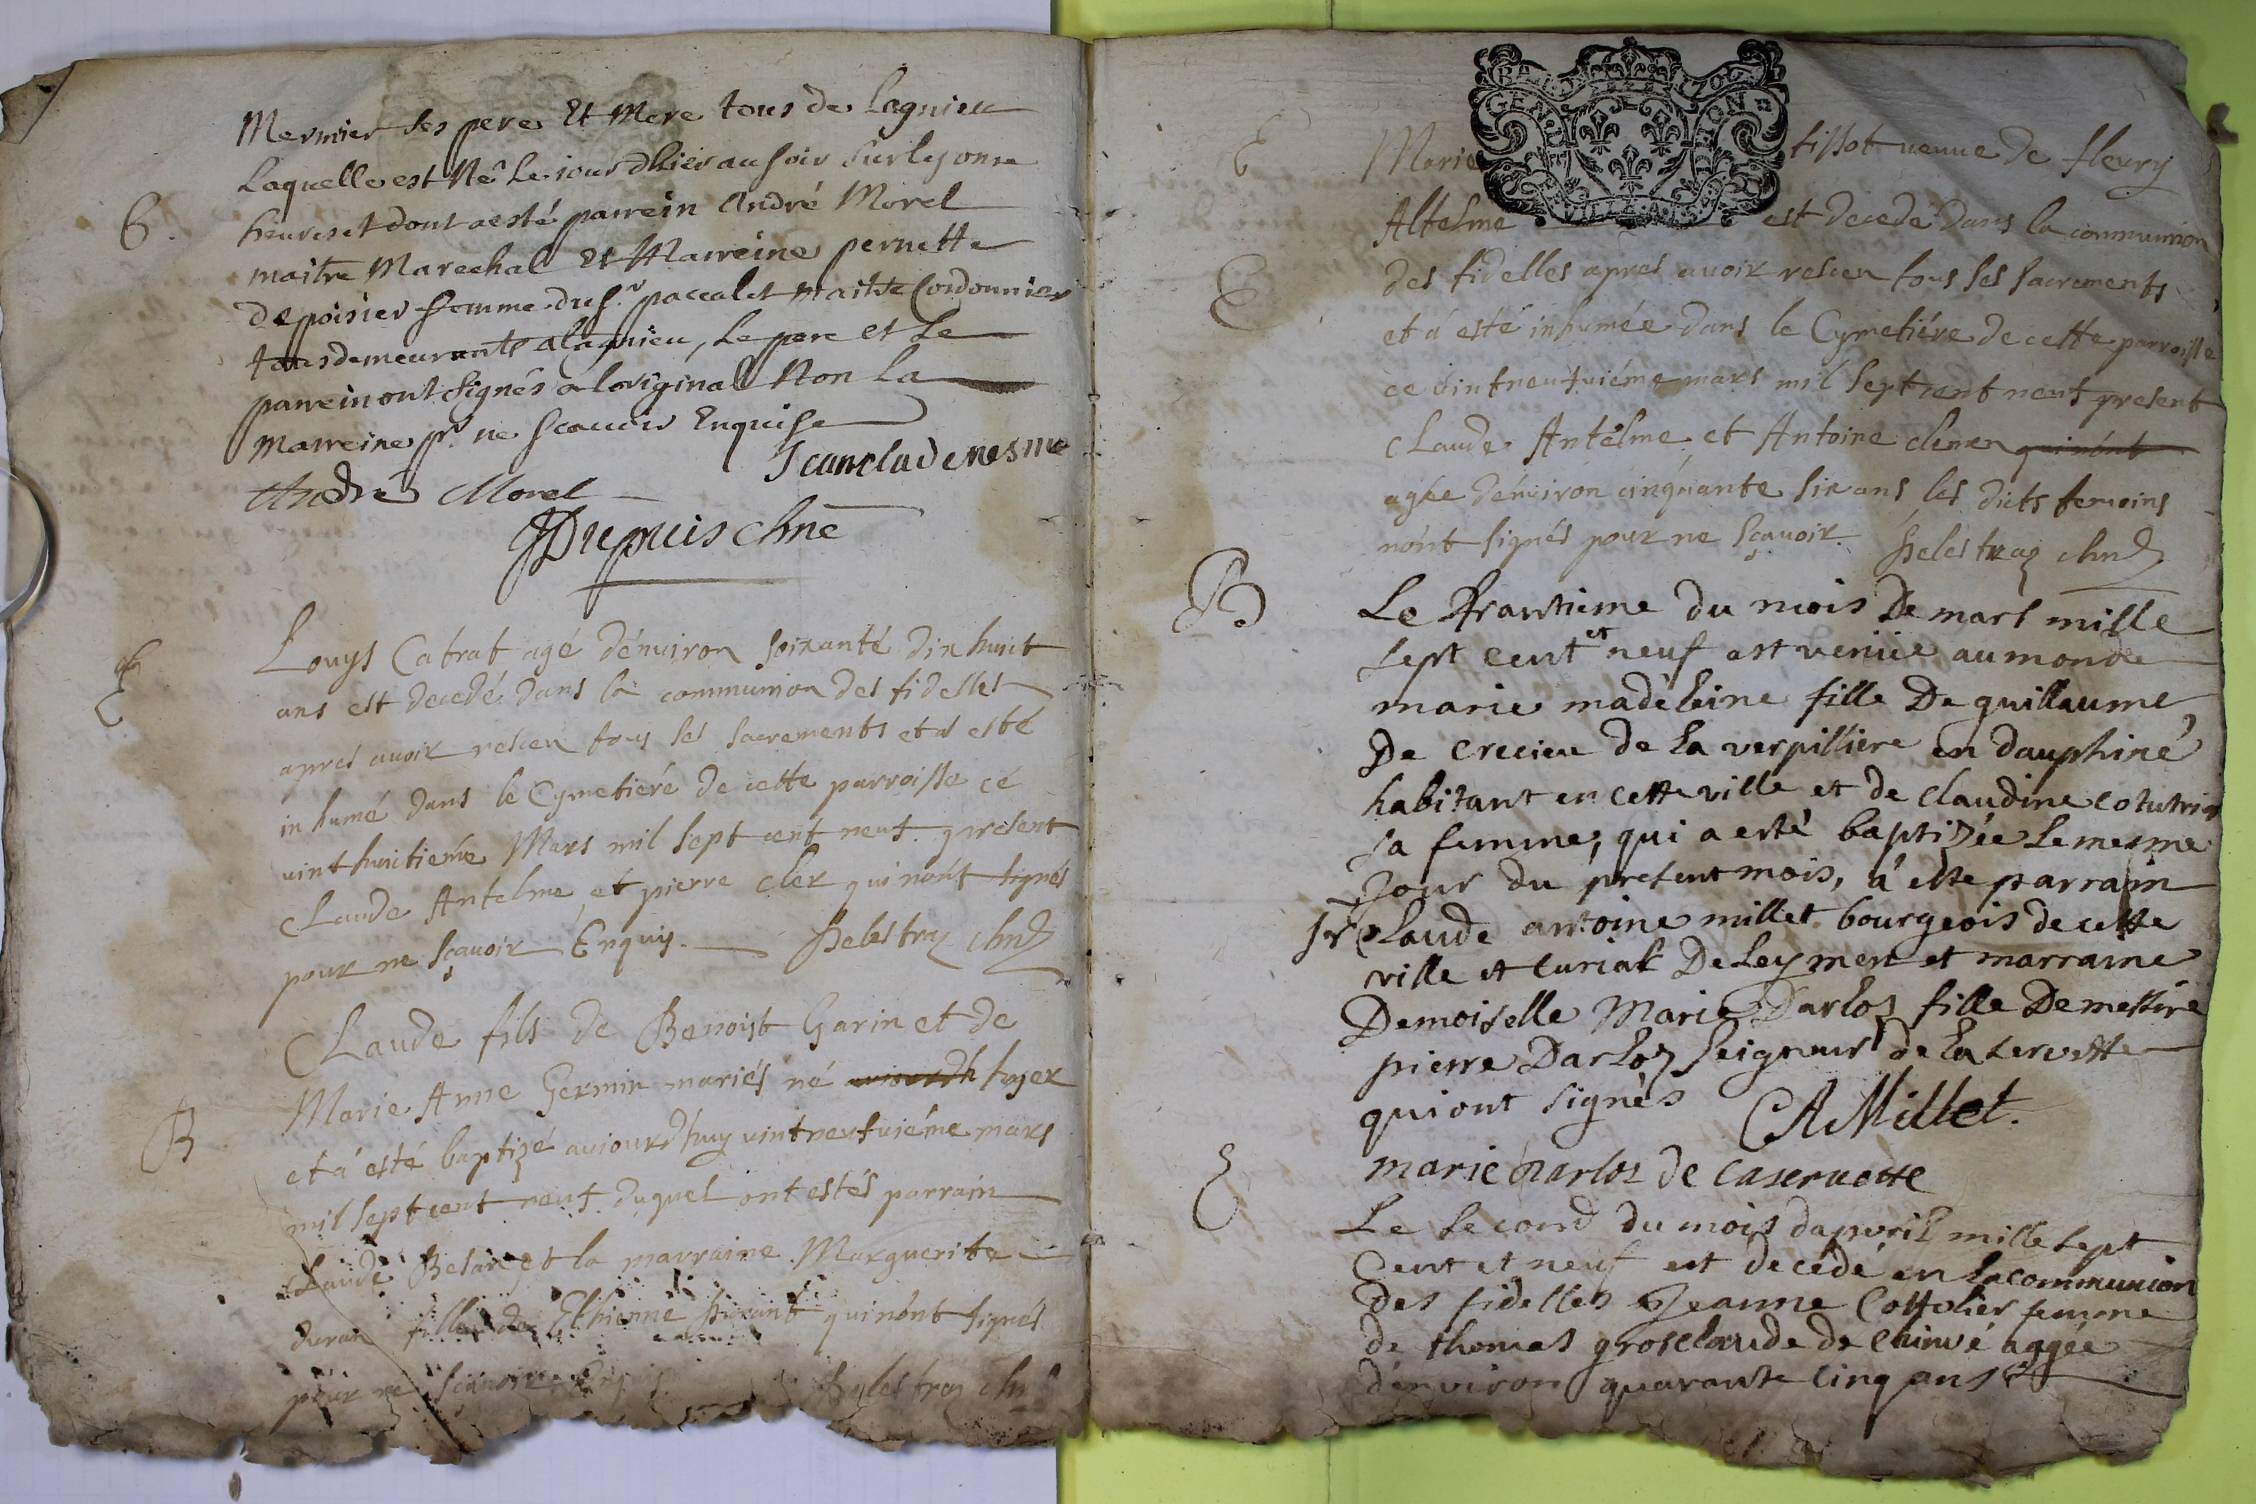 Mermier ses pere Et Mere tous de Lagnieu
Laquelle est Née Le jour dhier au soir sur les onze
heures et dont a esté parrein André Morel
B.
maitre Marechal Et Marreine pernette
depoisier femme du sr paccalet maitre Cordonnier
tous demeurants a Lagnieu, Le pere et Le
parrein ont signés a loriginal Non La
marreine pr ne scavoir Enquise
Jean clade mesme
André Morel
JDupuis chne
Louys Catrat agé dénuiron soixanté dix huit
E
ans est decedé dans la communion des fidelles
apres auoir receu tous ses sacrements et a esté
inhumé dans le Cymetiéré de cette parroisse cé
uint huictiéme Mars mil sept cent neuf. present
Claude Antelme et pierre cler qui nónt signés
pour ne sçauoir Enquis. Helestraz chne
Claude fils de Benoist Garin et de
Marie Anne Germin mariés né aujourdh hyer
B
et á esté baptizé aujourdhuy uintneufuiéme mars
mil sept cent neuf duquel ont estés parrain
Claude et la marraine Marguerite
duran fille de Ethienne qui nónt signés
pour ne sçauoir Enquis Helestraz chne
BA 1709
GENERALITE
VILLE AISEE
E
Marie tissot ueuue de fleury
Altelme est decedé dans la communion
E
des fidelles apres auoir receu tous ses sacrements
et á esté inhumée dans le Cymetiére de cette parroisse
ce uintneufuiéme mars mil sept cent neuf present
Claude Antélme et Antoine quinónt
agée dénuirón cinquante six ans les dicts temoins
nónt signés pour ne sçauoir. Helestraz chne
B
Le trantième du mois De mars mille
sept cent et neuf est venüe au monde
marie madèleine fille De guillaume
De crecieu de la verpilliere en dauphiné
habitant en cette ville et de claudine
sa femme, qui a esté baptizée le mesme
Jour du present mois, á esté parrain
sr Claude antoine millet bourgeois de cette
ville et curial De Leymen et marraine
Demoiselle Marie Darloz fille De messire
pierre Darloz seigneur de la servette
qui ont signés CA Millet.
marie darloz de laseruette
E
Le second du mois dapvril mille sept
Cent et neuf est decédé en la communion
Des fidelles Jeanne Cottolier femme
de thomas grosclaude de aagée
dénviron quarante cinq ans et